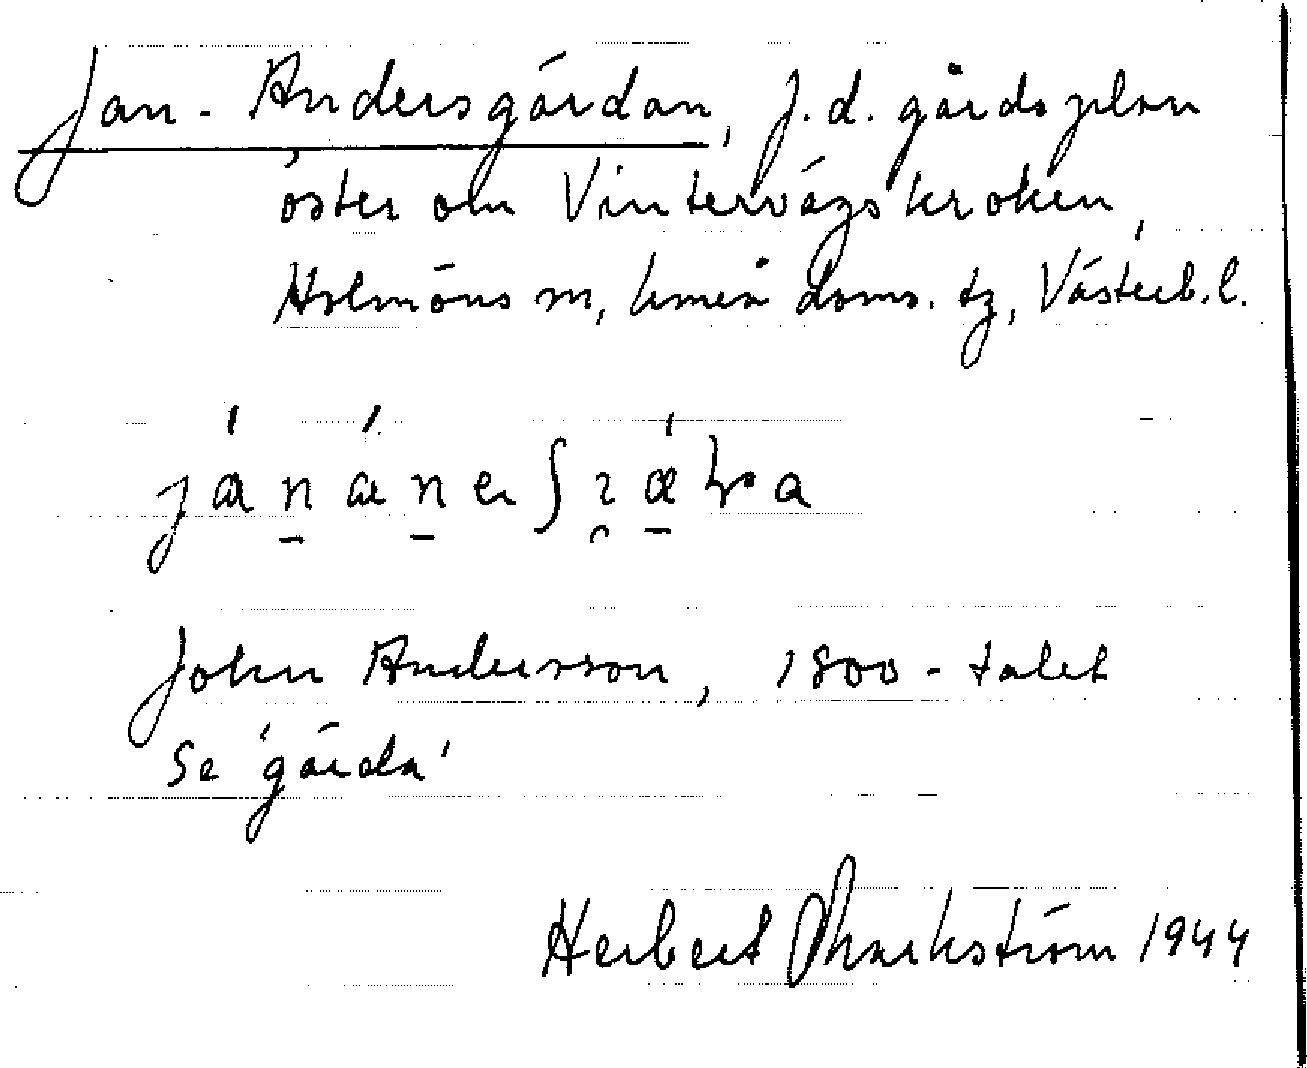 Jan-Andersgärdan, f.d. gårdsplan
öster om Vintervägskroken,
Holmöns sn, Umeå doms. tg, Västerb.l.
John Andersson, 1800-talet
Se 'gärda'
Herbert Markström 1944